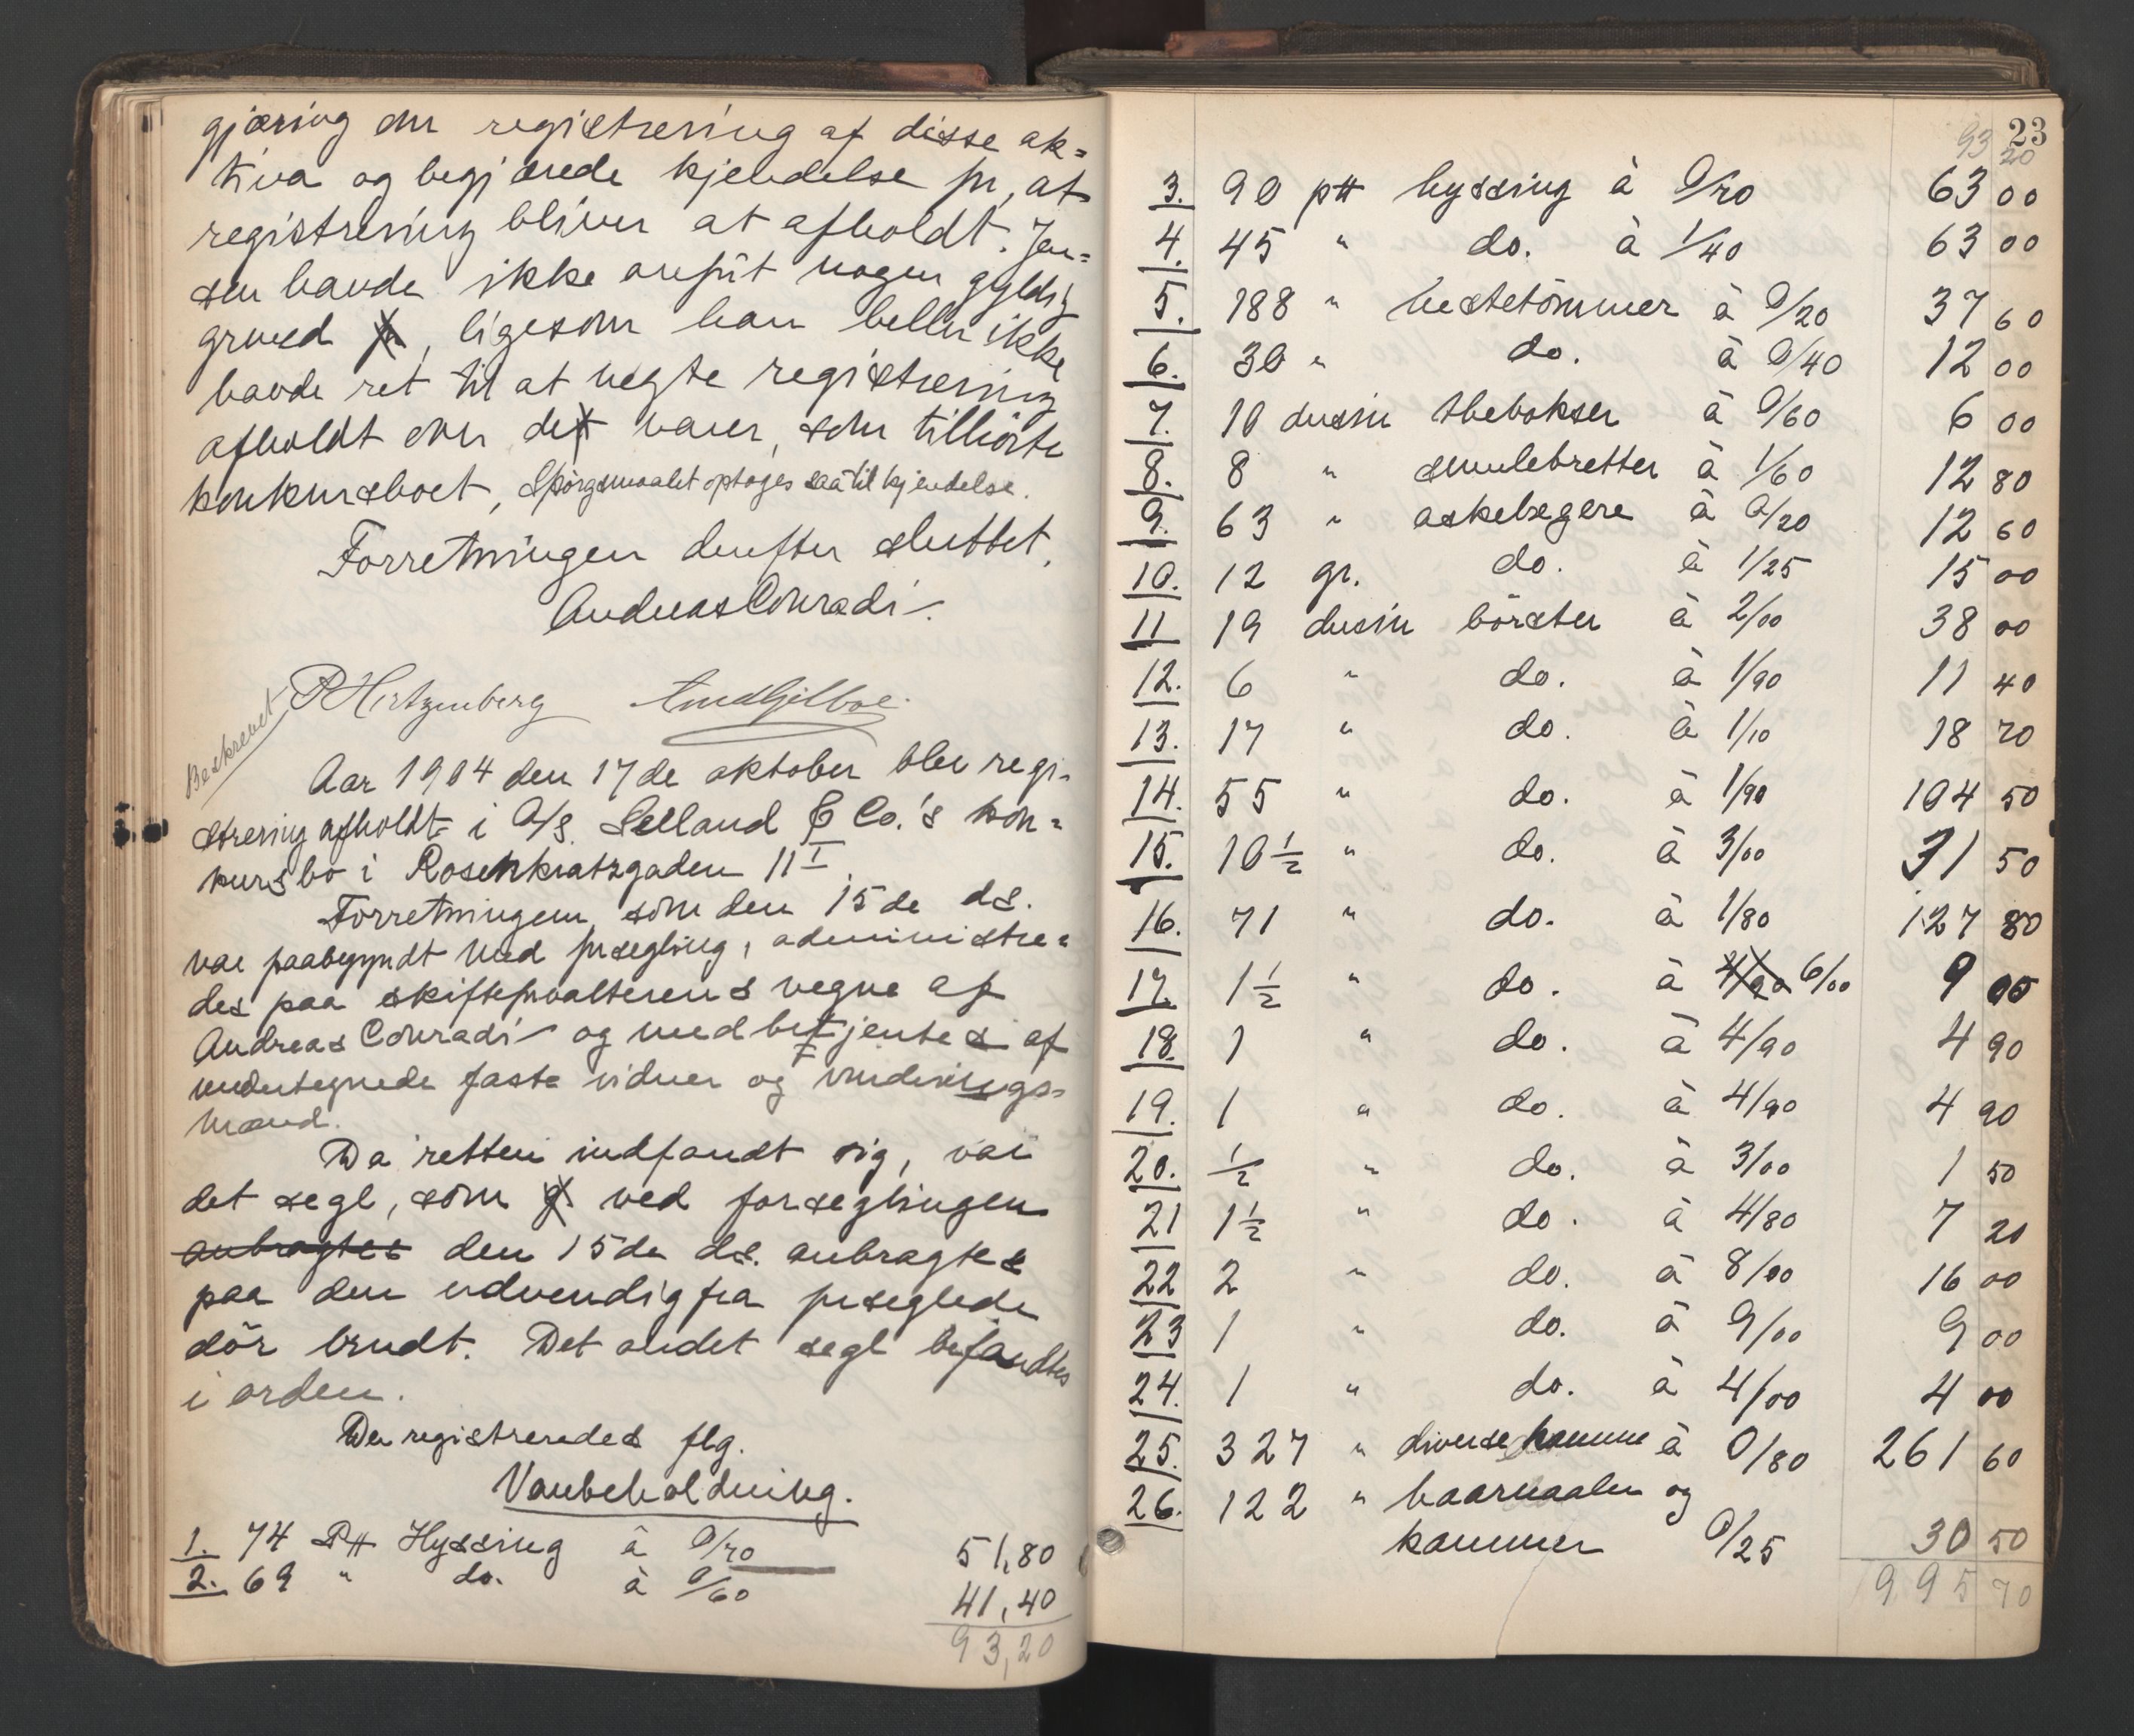 gjøring om registrering af disse ak=
tiva og begjærede kjendelse for, at
registrering bliver at afholdt. Jen=
sen havde ikke anført nogen gyldig
grund, ligesom han heller ikke
havde ret til at negte registrering
afholdt over de varer, som tilhörte
konkursboet, Spörgsmaalet optoges saa til kjendelse.
Forretningen derefter sluttet.
Andreas Conradi
P Hertzenberg
Beskrevet
Aar 1904 den 17de oktober blev regi=
strering afholdt i A/S. Selland & Co.'s kon=
kursbo i Rosenkratzgaden 11 I
Forretningen, som den 15de ds.
var paabegyndt med forsegling, administre=
des paa skifteforvalterens vegne af
Andreas Conradi og med betjentes af
undertegnede faste vidner og vurderings=
mænd.
Da retten indfandt sig, var
det segl, som ved forseglingen
anbragtes den 15de ds. anbragtes
paa den udvendig fra forseglede
dör brudt. Det andet segl befandtes
i orden.
Der registreredes flg.
Varebeholdning.
1. 74 Ptt Hyssing à 0/70 51,80
2. 69 " do. à 0/60 41,40
93,20
23
93 20
3. 90 ptt hyssing à 0/70 63 00
4. 45 " do. à 1/40 63 00
5. 188 " hestetömmer à 0/20 37 60
6. 30 " do. à 0/40 12 00
7. 10 dusin thebokser à 0/60 6 00
8. 8 " smulebretter à 1/60 12 80
9. 63 " askebegere à 0/20 12 60
10. 12 gr. do. à 1/25 15 00
11 19 dusin börster à 2/00 38 00
12. 6 " do. à 1/90 11 40
13. 17 " do. à 1/10 18 70
14. 55 " do. à 1/90 104 50
15. 10 1/2 " do. à 3/00 31 50
16. 71 " do. à 1/80 127 80
17. 1 1/2 " do. à 4/90 6/00 9 00
18. 1 " do. à 4/90 4 90
19. 1 " do. à 4/90 4 90
20. 1/2 " do. à 3/00 1 50
21 1 1/2 " do. à 4/80 7 20
22 2 " do. à 8/00 16 00
23 1 " do. à 9/00 9 00
24. 1 " do. à 4/00 4 00
25. 327 " diverse kamme à 0/80 261 60
26. 122 " haarnaaler og
kammer 0/25 30 50
995 70